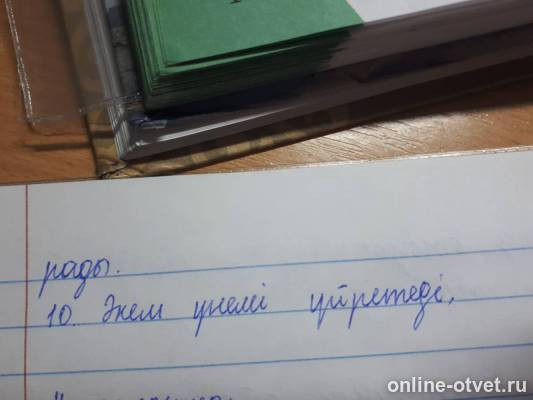 рады.
10. Әкем үнемі үйретеді.
online-otvet.ru